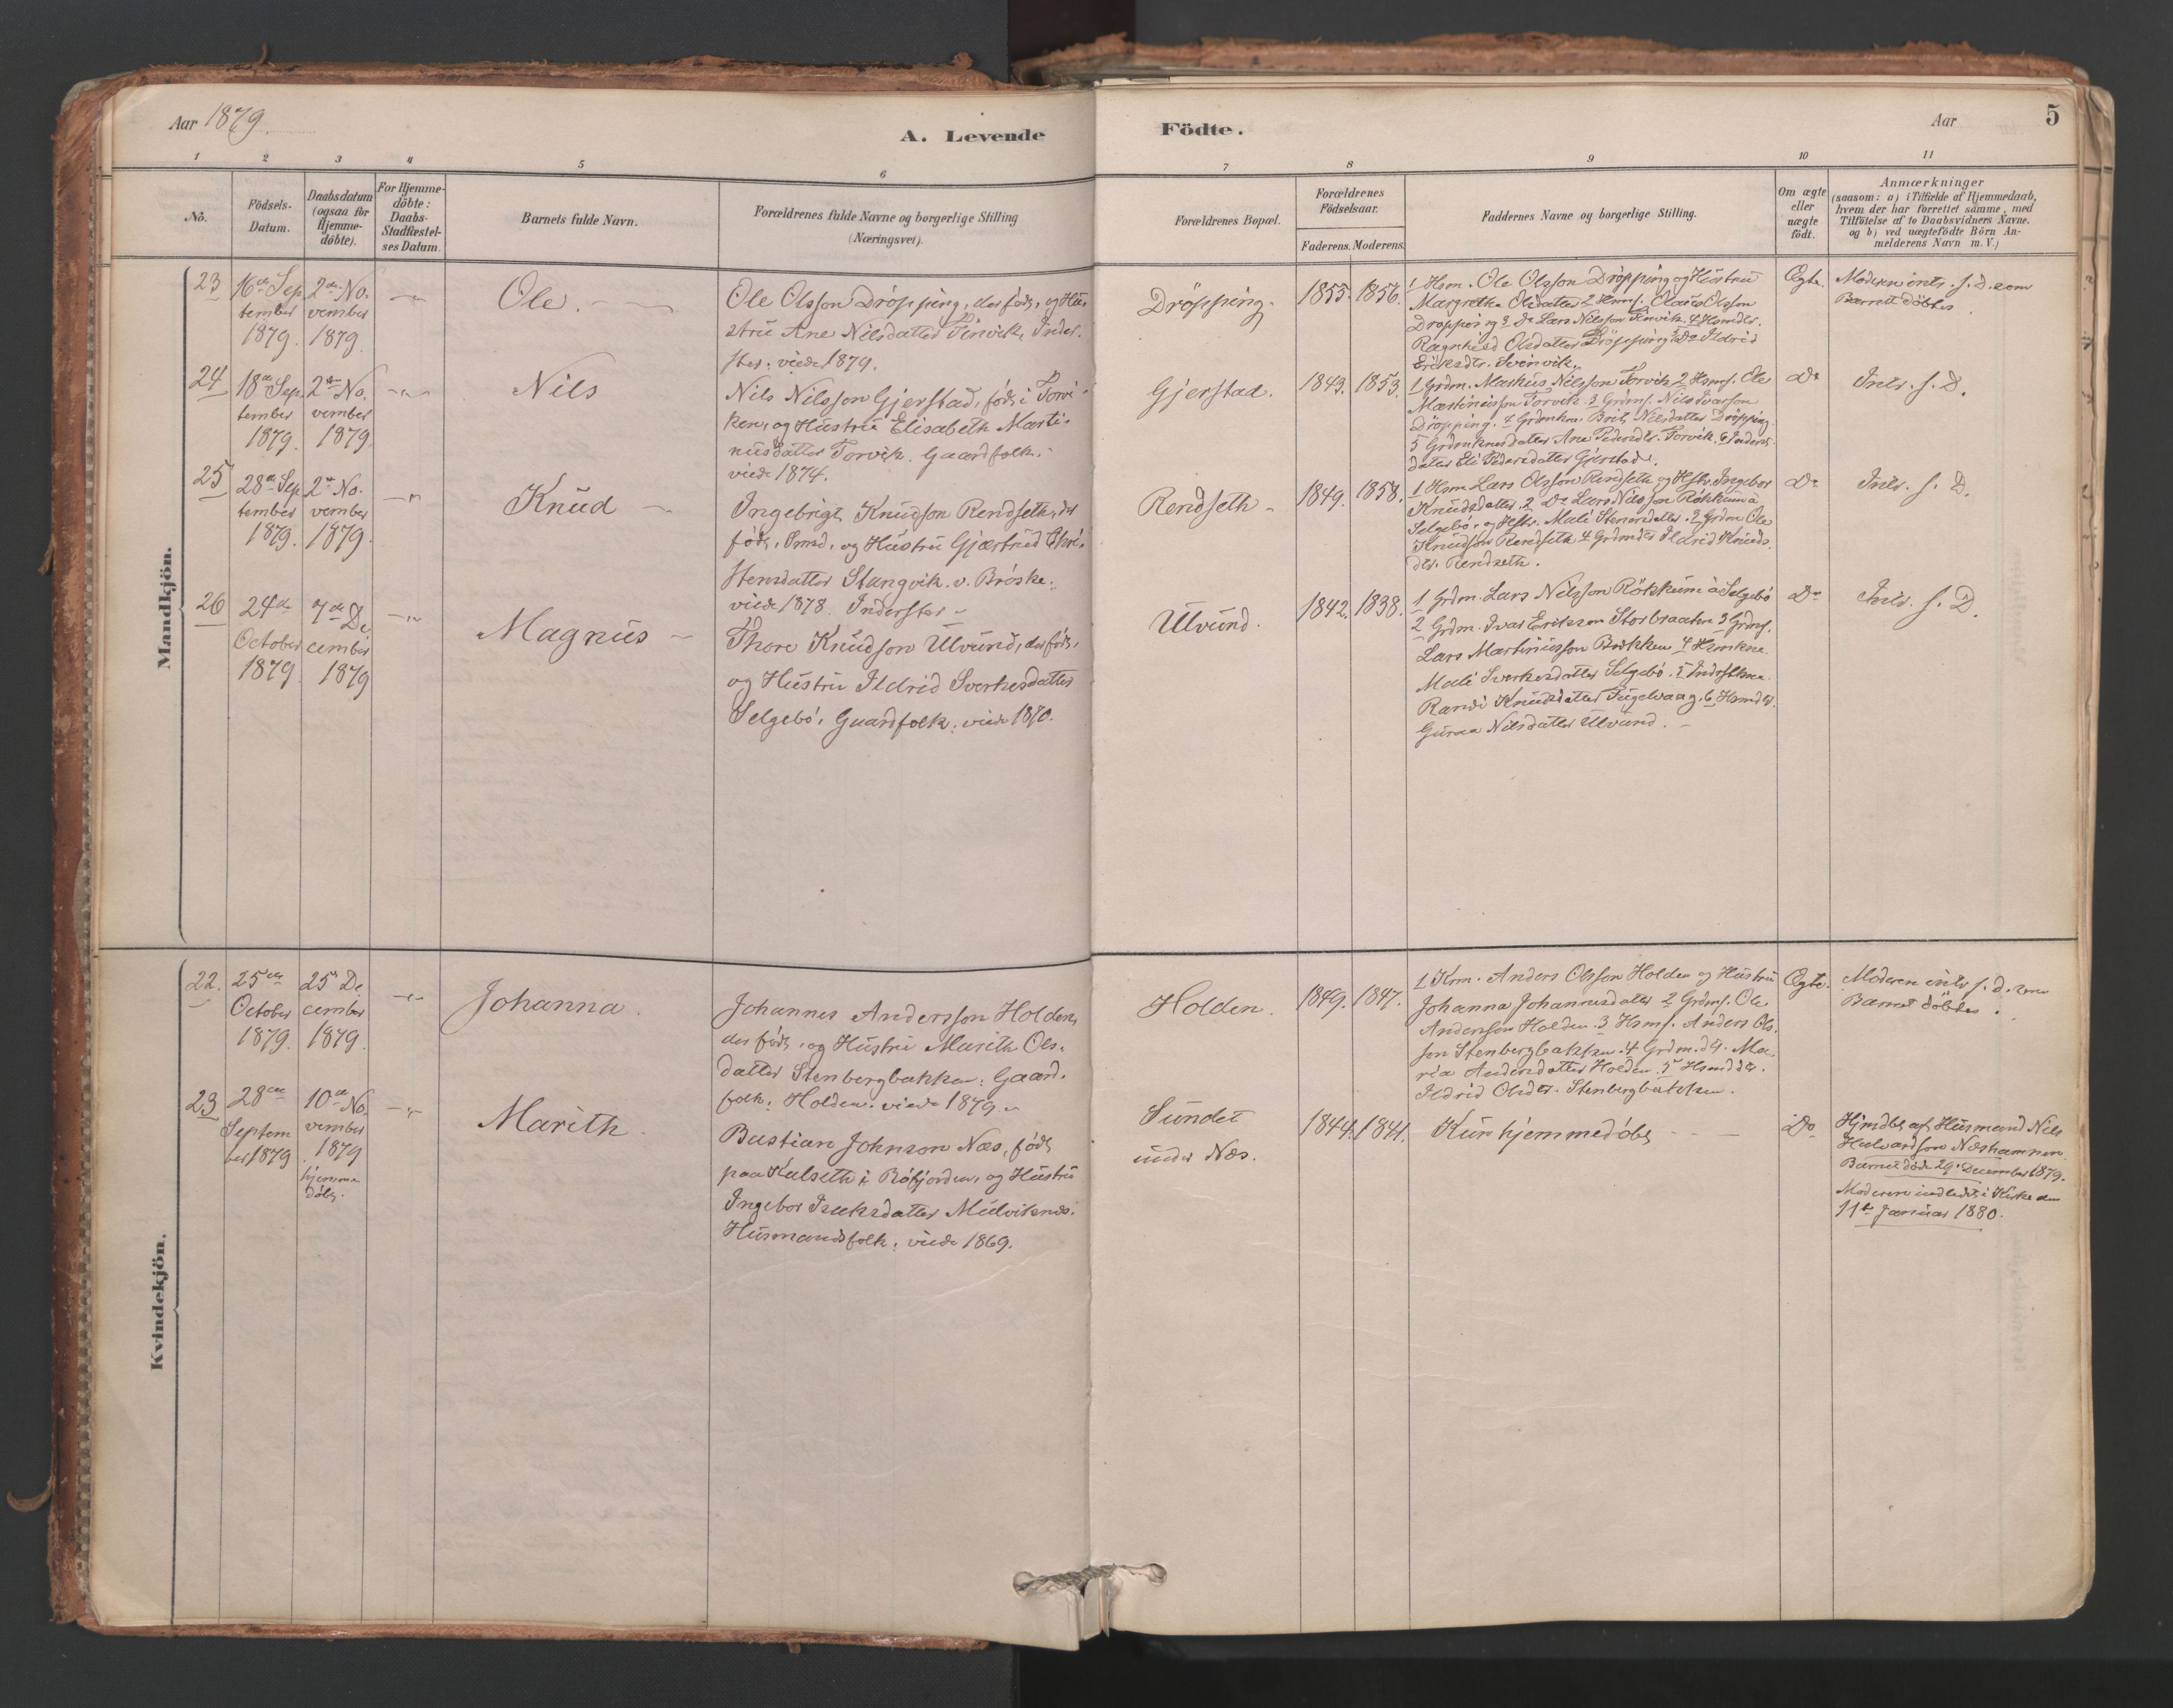 Aar 1879.
A. Levende
Födte.
Aar
5
1 2 3 4 5 6 7 8 9 10 11
No.
Födsels-
Datum.
Daabsdatum
(ogsaa for
Hjemme-
döbte).
For Hjemme-
döbte:
Daabs-
Stadfæstel-
ses Datum.
Barnets fulde Navn.
Forældrenes fulde Navne og borgerlige Stilling
(Næringsvei).
Forældrenes Bopæl.
Forældrenes
Födselsaar.
Faderens. Moderens.
Faddernes Navne og borgerlige Stilling.
Om ægte
eller
uægte
födt.
Anmærkninger
(saasom: a) i Tilfælde af Hjemmedaab,
hvem der har forrettet samme, med
Tilföielse af to Daabsvidners Navne.
og b) ved uægtefödte Börn An-
melderens Navn m. V.)
Mandkjön.
23
16de Sep
tember
1879.
2den No.
vember
1879
Ole.
Ole Olsson Dröpping, der föds, og Hu-
stru Ane Nilsdatter Tinvik, Inder.
ster: viede 1879.
Dröpping.
1855. 1856.
1 Hsm. Ole Olsson Dröpping og Hustru
Margrethe Olsdatter 2 Hsms. Olaus Olsson
Dröpping 3 Do Lars Nilsson Tinvik. 4 Hsmdtr.
Ragnhild Olsdatter Dröpping 5 Do Ildrid
Eriksdtr. Svinvik.
Ægte.
Moderen intr. s. d. som
Barnet döbtes.
24
18de Sep.
tember
1879.
2den No.
vember
1879.
Nils
Nils Nilsson Gjerstad, föds i Torvi-
ken, og Hustru Elisabeth Marti-
nusdatter Torvik. Gaardfolk.
viede 1874.
Gjerstad.
1843. 1853.
1 Grdm. Markus Nilsson Torvik 2 Hsms. Ole
Martinusson Torvik. 3 Grdms. Nils Ivarson
Dröpping. 4 Grdmkne. Brit Nilsdatter Dröpping
5 Grdmknes datter Ane Pedersdtr. Torvik. 6 Inderst
datter Eli Pedersdatter Gjerstad.
Do
Intr. s. D.
25
28de Sep
tember
1879.
2den No.
vember
1879.
Knud
Ingebrigt Knudson Rendseth, der
föds, Smed, og Hustru Gjærtrud Chri-
stensdatter Stangvik. v. Bröske.
viede 1878. Inderster
Rendseth
1849. 1858.
1 Hsm Lars Olsson Rendseth og Hstr. Ingebor
Knudsdatter. 2 Do Lars Nilsson Rökkum à
Selgebö. og Hstr. Mali Stenersdatter. 3 Grdm Ole
Knudson Rendseth 4 Grdmdtr Ildrid Knuds.
dtr. Rendseth.
Do
Intr. s. D.
26
24de
October
1879.
7de De
cember
1879
Magnus
Thore Knudson Ulvund, der föds,
og Hustru Ildrid Sverkesdatter
Selgebö, Gaardfolk. viede 1870.
Ulvund.
1842. 1838.
1 Grdm. Lars Nilsson Rökkum à Selgebö
2 Grdm. Ivar Erikson Storbraaten 3 Grdms.
Lars Martinusson Brækken 4 Hsmkne.
Mali Sverkesdatter Selgebö. 5 Inderstkne
Randi Knudsdatter Tugelvaag. 6 Hsmdtr.
Guroe Nilsdatter Ulvund.
Do
Intr. s. D.
Kvindekjön.
22.
25de
October
1879.
25de De
cember
1879.
Johanna.
Johannes Andersson Holden,
der föds, og Hustru Marith Ols.
datter Stenbergbakken: Gaard.
folk. Holden. viede 1879.
Holden.
1849. 1847.
1 Krm. Anders Olsson Holden og Hustru
Johanna Johannesdatter 2 Grdms. Ole
Anderson Holden. 3 Hsms. Anders Ols.
son Stenbergbakken. 4 Grdm.dtr. Ma.
ria Andersdatter Holden. 5 Hsmddtr.
Ildrid Olsdtr. Stenbergbakken.
Ægte.
Moderen intr s. d. som
Barnet döbtes.
23
28de
Septem
ber 1879
10de No.
vember
1879
hjemme
döbt.
Marith
Bastian Johnson Næs, föds
paa Kulseth i Röfjorden, og Hustru
Ingebor Isaksdatter Mulviknes.
Husmandsfolk. viede 1869.
Sundet
under Næs.
1844. 1841.
Kun hjemmedöbt
Do
Hjmdbt. af Husmand Nils
Halvardson Næshammeren.
Barnet döde 29. December 1879.
Moderen indledet i Kirke den
11te Januar 1880.